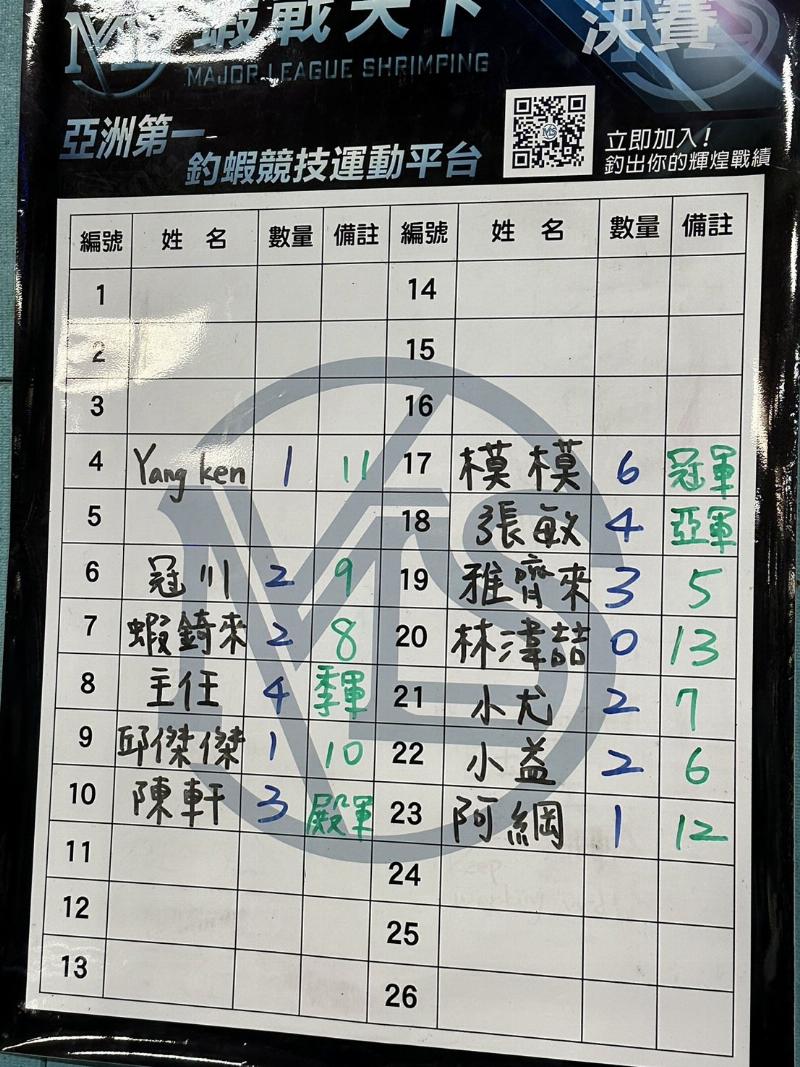 蝦戰天下
決賽
MAJOR LEAGUE SHRIMPING
亞洲第一
釣蝦競技運動平台
立即加入！
釣出你的輝煌戰績
編號 姓 名 數量 備註 編號 姓 名 數量 備註
1 14
2 15
3 16
4 Yang ken 1 11 17 模模 6 冠軍
5 18 張敏 4 亞軍
6 冠川 2 9 19 雅齊來 3 5
7 蝦錡來 2 8 20 林湋喆 0 13
8 主任 4 季軍 21 小尤 2 7
9 邱傑傑 1 10 22 小益 2 6
10 陳軒 3 殿軍 23 阿綱 1 12
11 24
12 25
13 26